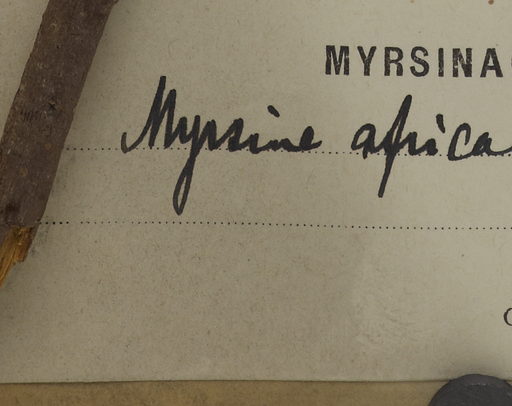 MYRSINA
Myrsine africa